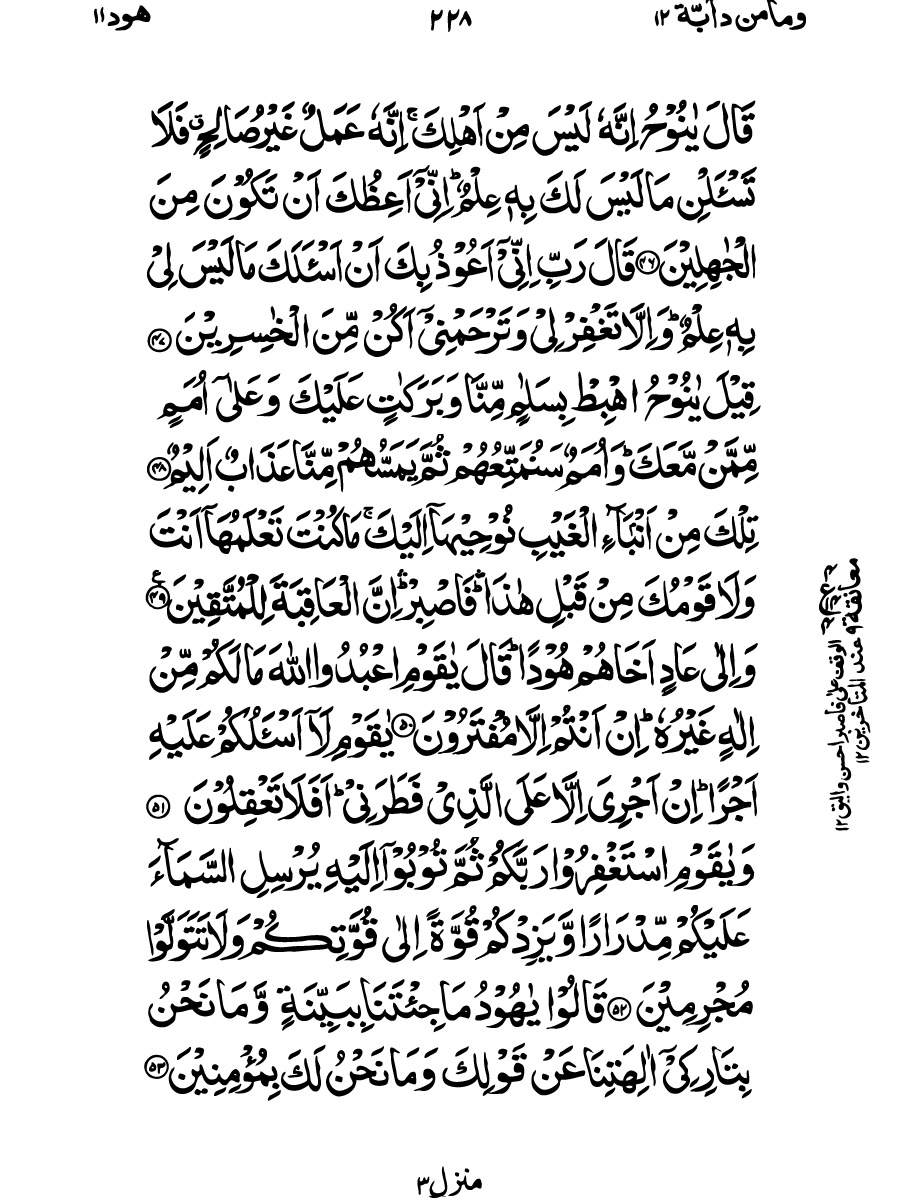 ومامن دآبّة ١٢
٢٢٨
هود ١١
قَالَ يٰنُوْحُ اِنَّهٗ لَيْسَ مِنْ اَهْلِكَ ۚ اِنَّهٗ عَمَلٌ غَيْرُ صَالِحٍ ۖق فَلَا
تَسْـَٔلْنِ مَا لَيْسَ لَكَ بِهٖ عِلْمٌ ؕ اِنِّيْۤ اَعِظُكَ اَنْ تَكُوْنَ مِنَ
الْجٰهِلِيْنَ ﴿۴۶﴾ قَالَ رَبِّ اِنِّيْۤ اَعُوْذُ بِكَ اَنْ اَسْـَٔلَكَ مَا لَيْسَ لِيْ
بِهٖ عِلْمٌ ؕ وَ اِلَّا تَغْفِرْ لِيْ وَ تَرْحَمْنِيْۤ اَكُنْ مِّنَ الْخٰسِرِيْنَ ﴿۴۷﴾
قِيْلَ يٰنُوْحُ اهْبِطْ بِسَلٰمٍ مِّنَّا وَ بَرَكٰتٍ عَلَيْكَ وَ عَلٰۤى اُمَمٍ
مِّمَّنْ مَّعَكَ ؕ وَ اُمَمٌ سَنُمَتِّعُهُمْ ثُمَّ يَمَسُّهُمْ مِّنَّا عَذَابٌ اَلِيْمٌ ﴿۴۸﴾
تِلْكَ مِنْ اَنْۢبَآءِ الْغَيْبِ نُوْحِيْهَاۤ اِلَيْكَ ۚ مَا كُنْتَ تَعْلَمُهَاۤ اَنْتَ
وَ لَا قَوْمُكَ مِنْ قَبْلِ هٰذَا ۛؕ فَاصْبِرْ ۛؕ اِنَّ الْعَاقِبَةَ لِلْمُتَّقِيْنَ ﴿۴۹﴾ع
وَ اِلٰى عَادٍ اَخَاهُمْ هُوْدًا ؕ قَالَ يٰقَوْمِ اعْبُدُوا اللّٰهَ مَا لَكُمْ مِّنْ
اِلٰهٍ غَيْرُهٗ ؕ اِنْ اَنْتُمْ اِلَّا مُفْتَرُوْنَ ﴿۵۰﴾ يٰقَوْمِ لَاۤ اَسْـَٔلُكُمْ عَلَيْهِ
اَجْرًا ؕ اِنْ اَجْرِيَ اِلَّا عَلَى الَّذِيْ فَطَرَنِيْ ؕ اَفَلَا تَعْقِلُوْنَ ﴿۵۱﴾
وَ يٰقَوْمِ اسْتَغْفِرُوْا رَبَّكُمْ ثُمَّ تُوْبُوْۤا اِلَيْهِ يُرْسِلِ السَّمَآءَ
عَلَيْكُمْ مِّدْرَارًا وَّ يَزِدْكُمْ قُوَّةً اِلٰى قُوَّتِكُمْ وَ لَا تَتَوَلَّوْا
مُجْرِمِيْنَ ﴿۵۲﴾ قَالُوْا يٰهُوْدُ مَا جِئْتَنَا بِبَيِّنَةٍ وَّ مَا نَحْنُ
بِتَارِكِيْۤ اٰلِهَتِنَا عَنْ قَوْلِكَ وَ مَا نَحْنُ لَكَ بِمُؤْمِنِيْنَ ﴿۵۳﴾
معانقة ۹ عند المتاخرين ١٢
الوقف على فاصبر احسن واليق ١٢
منزل ٣